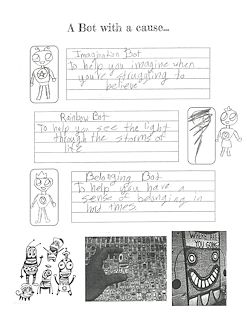 A Bot with a cause...
Imagination Bot
To help you imagine when
you're struggling to
believe
Rainbow Bot
To help you see the light
through the storms of
life
Belonging Bot
To help you have a
sense of belonging in
hard times.